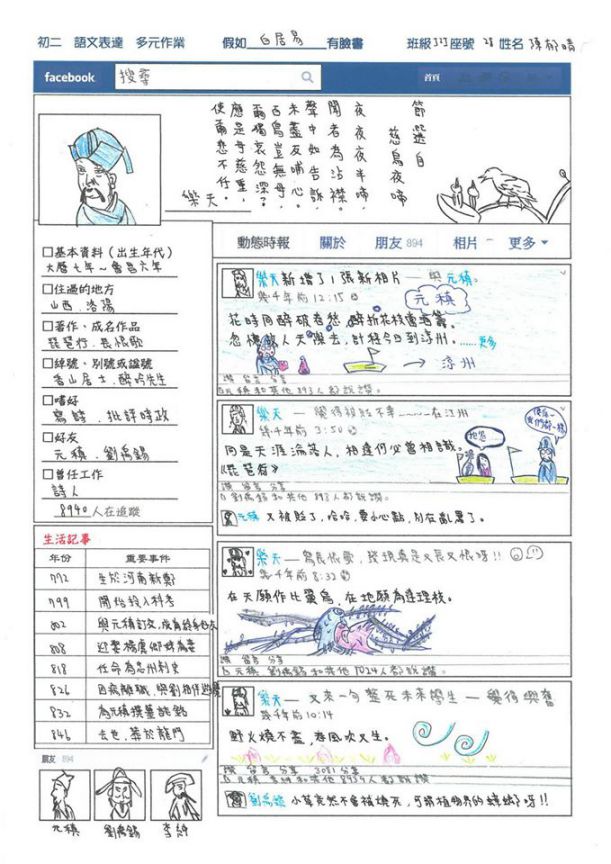 初二　語文表達　多元作業　　假如 白居易 有臉書　　班級 313 座號 28 姓名 陳郁晴
facebook　搜尋　首頁
節選自
慈烏夜啼
夜夜夜半啼，
聞者為沾襟。
聲中如告訴，
未盡反哺心。
百鳥豈無母，
爾獨哀怨深？
應是母慈重，
使爾悲不任。
樂天
動態時報　關於　朋友 894　相片　更多
□基本資料（出生年代）
大曆七年～會昌六年
□住過的地方
山西、洛陽
□著作、成名作品
琵琶行、長恨歌
□綽號、別號或諡號
香山居士、醉吟先生
□嗜好
寫詩、批評時政
□好友
元稹、劉禹錫
□曾任工作
詩人
8940 人在追蹤
生活記事
年份　重要事件
772　生於河南新鄭
799　開始投入科考
802　與元稹訂交，成為終身好友
808　迎娶楊虞卿妹為妻
818　任命為忠州刺史
826　因病離職，與劉相伴遊歷
832　為元稹撰墓誌銘
846　去世，葬於龍門
朋友 894
元稹　劉禹錫　李紳
樂天 新增了1張新相片 — 與元稹。
幾千年前 12:15
元稹
花時同醉破春愁，醉折花枝當酒籌。
忽憶故人天際去，計程今日到涼州。……更多
涼州
讚　留言　分享
元稹和其他893人都說讚。
樂天 — 覺得被貶不幸~~~~在江州
幾千年前 3:50
同是天涯淪落人，相逢何必曾相識。
《琵琶行》
讚　留言　分享
劉禹錫和其他893人都說讚。
元稹 又被貶了，哈哈，要小心點，別在亂罵了。
樂天 — 寫長恨歌，發現真是又長又恨呀!!
幾千年前 8:32
在天願作比翼鳥，在地願為連理枝。
讚　留言　分享
元稹、劉禹錫和其他1024人都說讚。
樂天 — 又來一句整死未來學生 — 覺得興奮
幾千年前 10:14
野火燒不盡，春風吹又生。
讚　留言　分享　3081分享
元稹、李紳和其他8939人都說讚
劉禹錫 小草竟然不會被燒死，可謂植物界的蟑螂呀!!